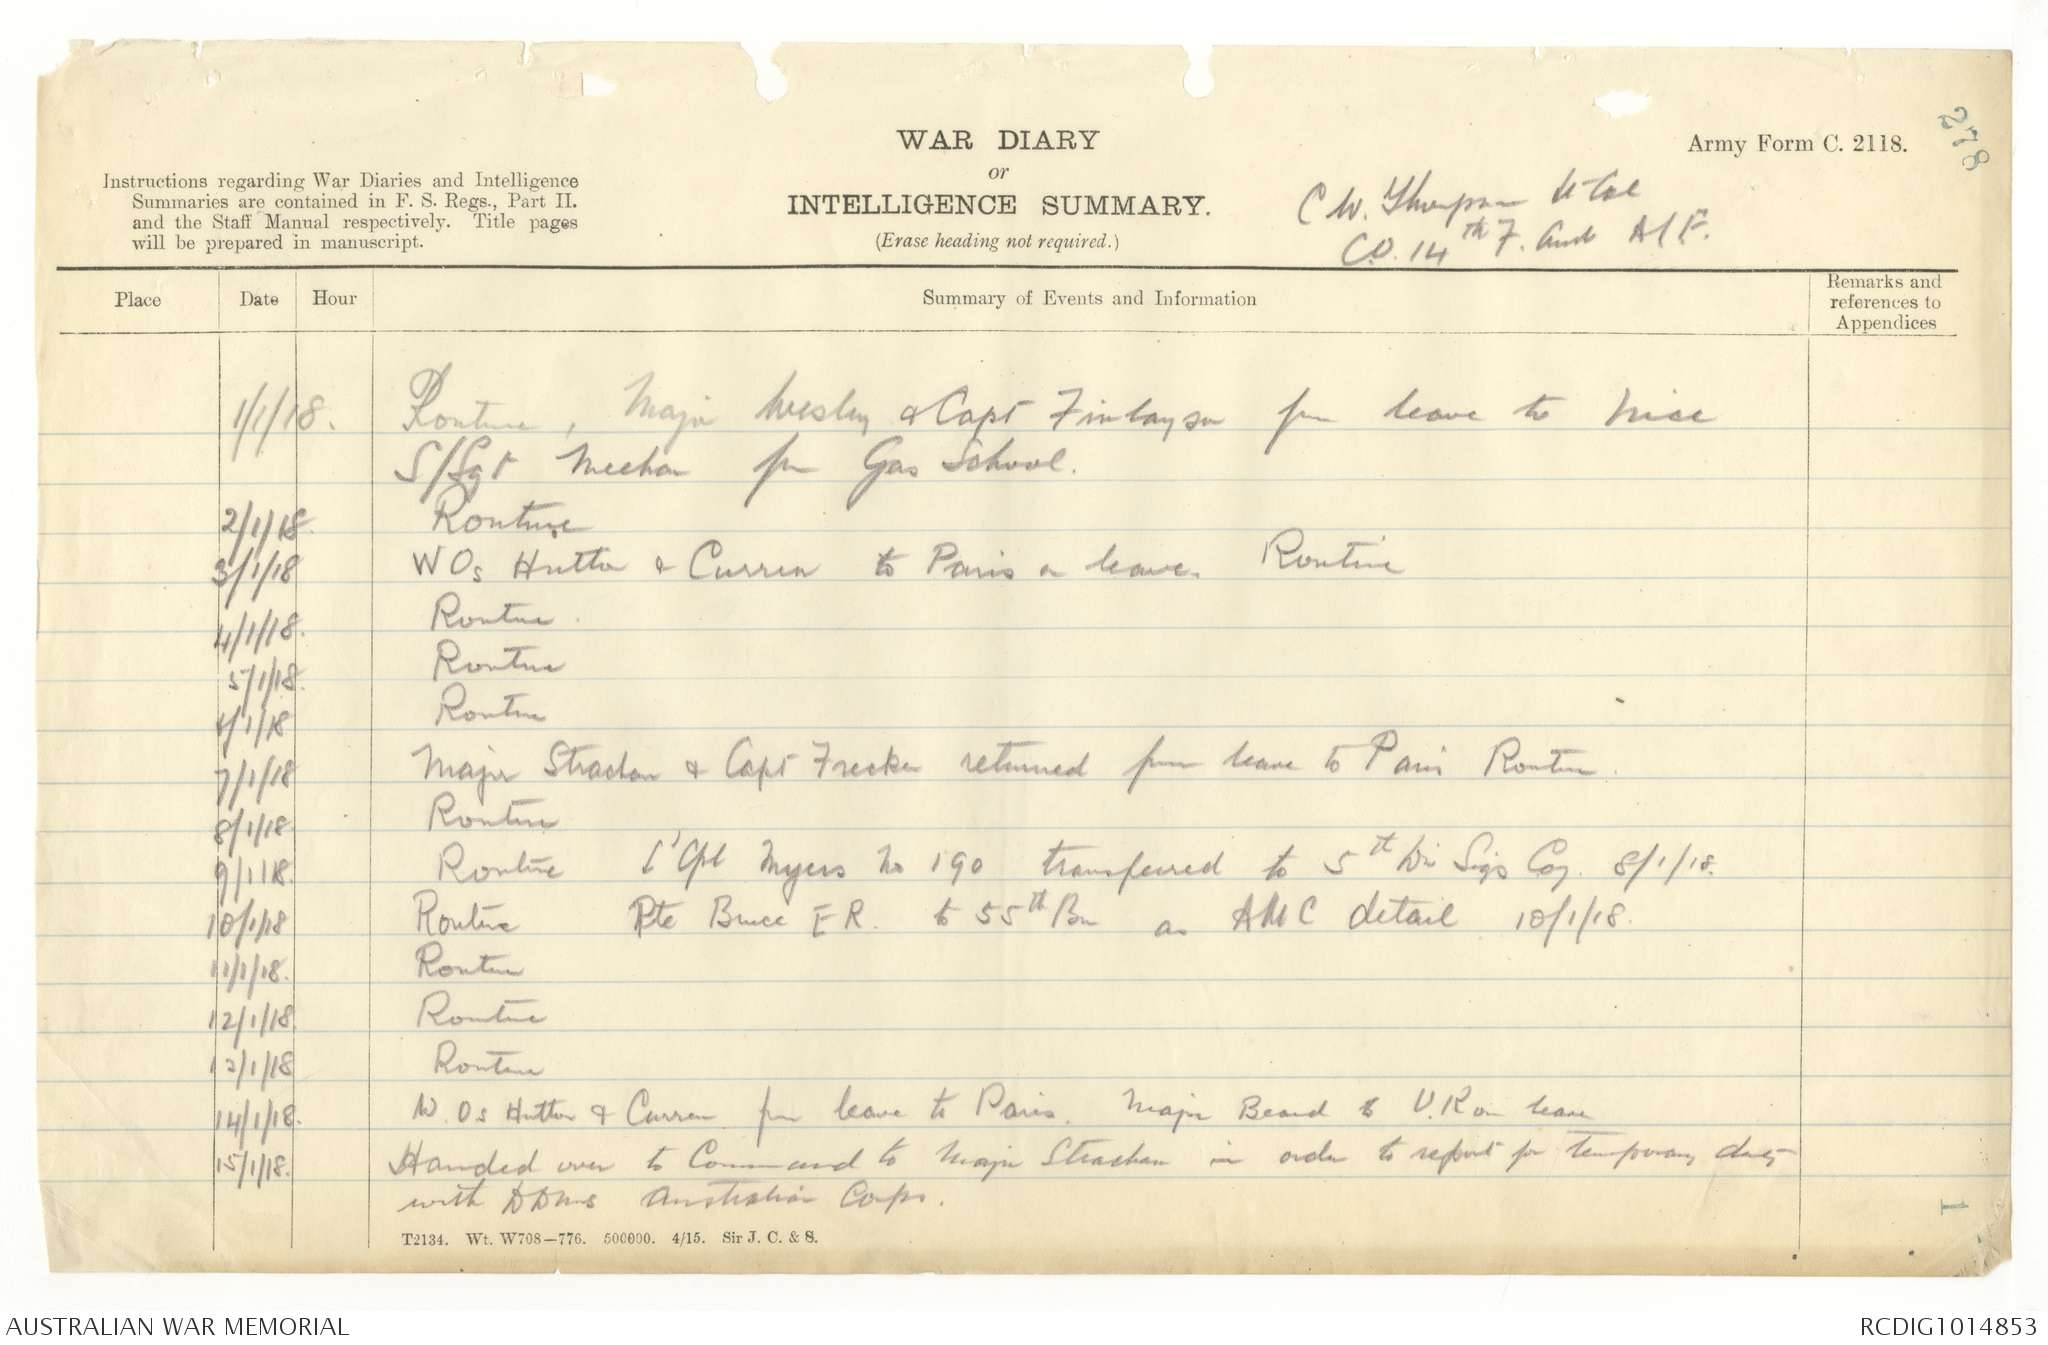 WAR DIARY
or
INTELLIGENCE SUMMARY.
(Erase heading not required.)
Army Form C. 2118.
278
Instructions regarding War Diaries and Intelligence
Summaries are contained in F. S. Regs., Part II.
and the Staff Manual respectively. Title pages
will be prepared in manuscript.
C W. Thompson Lt Col
C.O. 14th F. Amb A I F.
Place Date Hour Summary of Events and Information Remarks and references to Appendices
1/1/18. Routine, Major Wesley & Capt Finlayson from leave to Nice
S/Sgt Meehan from Gas School.
2/1/18. Routine
3/1/18 W Os Hutton & Curren to Paris on leave. Routine
4/1/18. Routine.
5/1/18. Routine
6/1/18 Routine
7/1/18 Major Strachan & Capt Frecker returned from leave to Paris Routine.
8/1/18. Routine
9/1/18. Routine L'Cpl Myers No 190 transferred to 5th Div Sigs Coy. 8/1/18.
10/1/18 Routine Pte Bruce E R. to 55th Bn as AMC detail 10/1/18.
11/1/18. Routine
12/1/18. Routine
12/1/18 Routine
14/1/18. W.Os Hutton & Curren from leave to Paris. Major Beard to U.K on leave
15/1/18. Handed over to Command to Major Strachan in order to report for temporary duty
with DDMS Australian Corps.
T2134. Wt. W708—776. 500000. 4/15. Sir J. C. & S.
1
AUSTRALIAN WAR MEMORIAL
RCDIG1014853